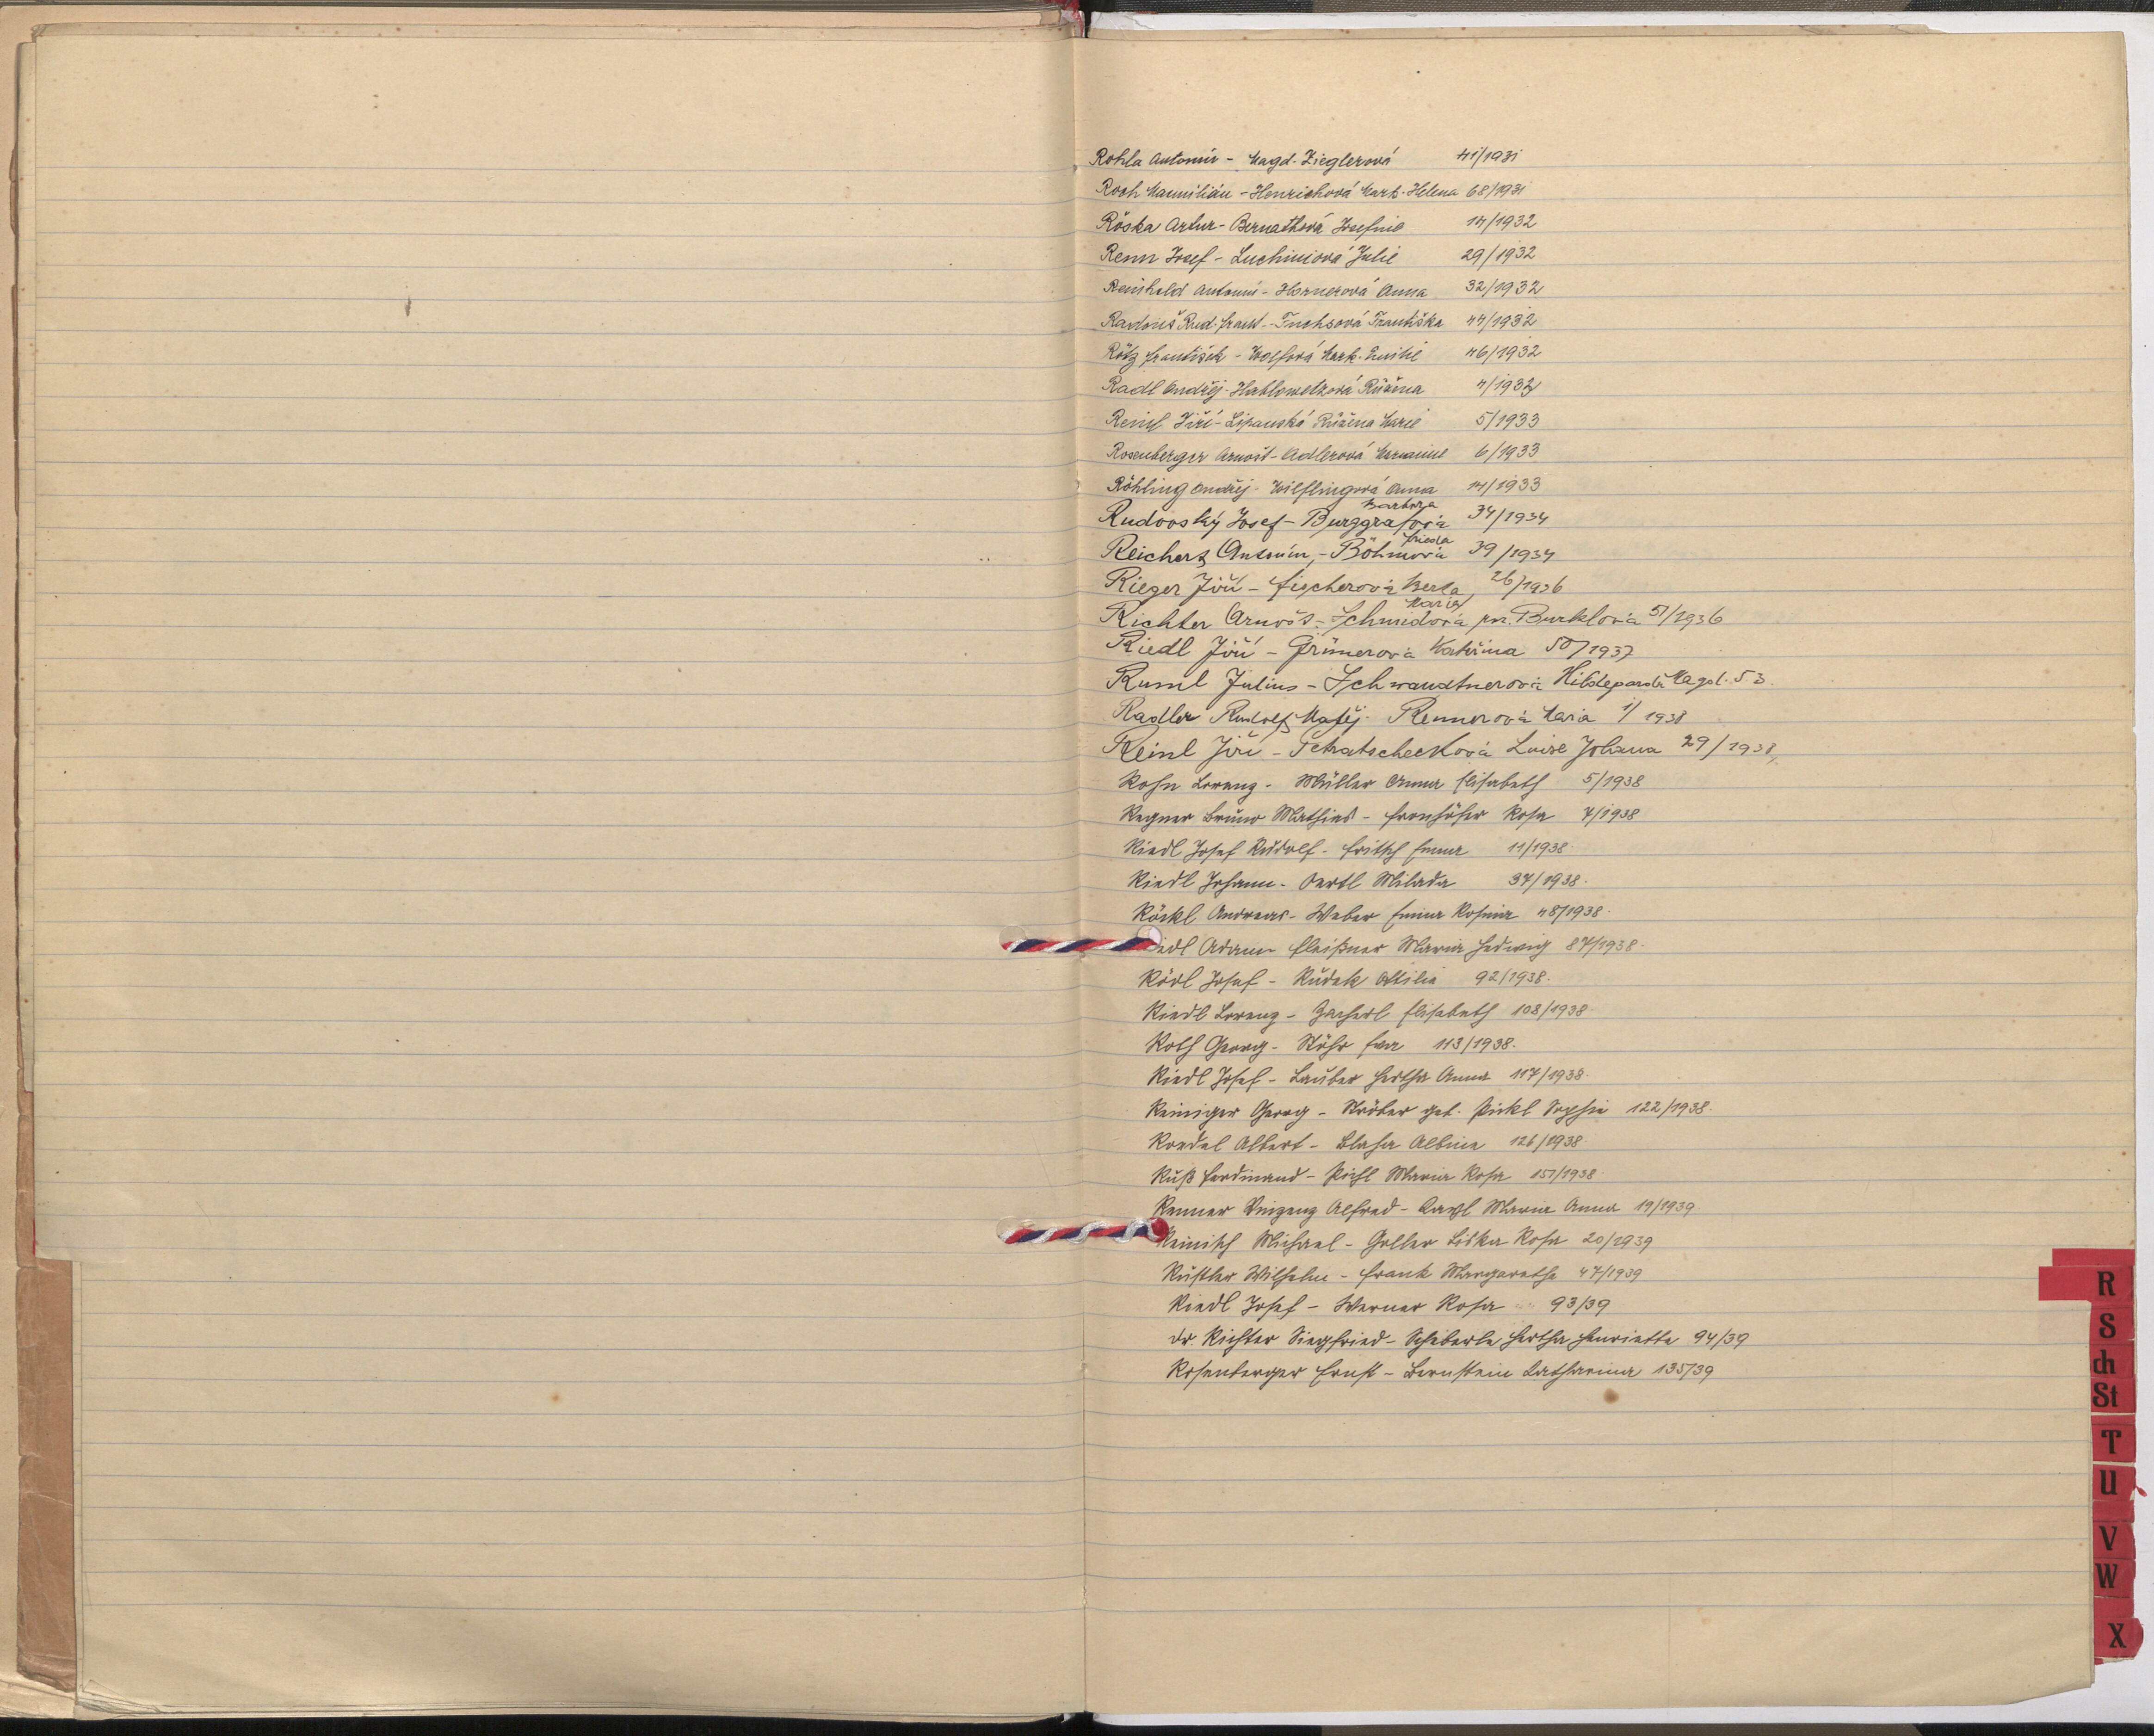 Rohla Antonín - Magd. Zieglerová 41/1931
Roch Maxmilián - Henrichová Mark. Helena 68/1931
Röska Artur - Bernathová Josefine 14/1932
Renn Josef - Luchiniová Julie 29/1932
Reinhold Antonín - Hornerová Anna 32/1932
Radouš Rud. Frant. - Fuchsová Františka 44/1932
Rötz František - Wolfová Mark. Emilie 46/1932
Radl Ondřej - Hablowetzová Růžena 4/1932
Reinl Jiří - Lipanská Růžena Marie 5/1933
Rosenberger Arnošt - Adlerová Marianne 6/1933
Röhling Ondřej - Wilflingová Anna 14/1933
Rudovský Josef - Burggrafová Barbora 34/1934
Reichert Antonín - Böhmová Frieda 39/1934
Rieger Jiří - Fischerová Berta, 26/1936
Richter Arnošt - Schmidová Marie, roz. Burklová 51/1936
Riedl Jiří - Grünerová Kateřina 50/1937
Ruml Julius - Schwandtnerová Hildegarda Magd. 53.
Radler Rudolf Matěj - Rennerová Maria 1/1938
Reinl Jiří - Tchatscheková Luise Johana 29/1938,
Rohn Lorenz - Müller Anna Elisabeth 5/1938
Regner Bruno Mathias - Fronhöfer Rosa 7/1938
Riedl Josef Rudolf - Fritsch Emma 11/1938
Riedl Johann - Oertl Milada 37/1938.
Röckl Andreas - Weber Emma Rosina 48/1938.
iedl Adam Fleißner Maria Hedwig 87/1938.
Rödl Josef - Rudek Ottilie 92/1938.
Riedl Lorenz - Zacherl Elisabeth 108/1938
Roth Georg - Stöhr Eva 113/1938.
Riedl Josef - Lauber Hertha Anna 117/1938.
Reiniger Georg - Ströber geb. Pickl Sophie 122/1938.
Roedel Albert - Blaha Albine 126/1938
Ruß Ferdinand - Pichl Maria Rosa 151/1938
Renner Vinzenz Alfred - Karl Maria Anna 19/1939
Reinisch Michael - Goller Liska Rosa 20/1939
Rustler Wilhelm - Frank Margaretha 47/1939
Riedl Josef - Werner Rosa 93/39
Dr. Richter Siegfried - Scheberle Hertha Henriette 94/39
Rosenberger Ernst - Bernstein Katharina 135/39
R
S
ch
St
T
U
V
W
X